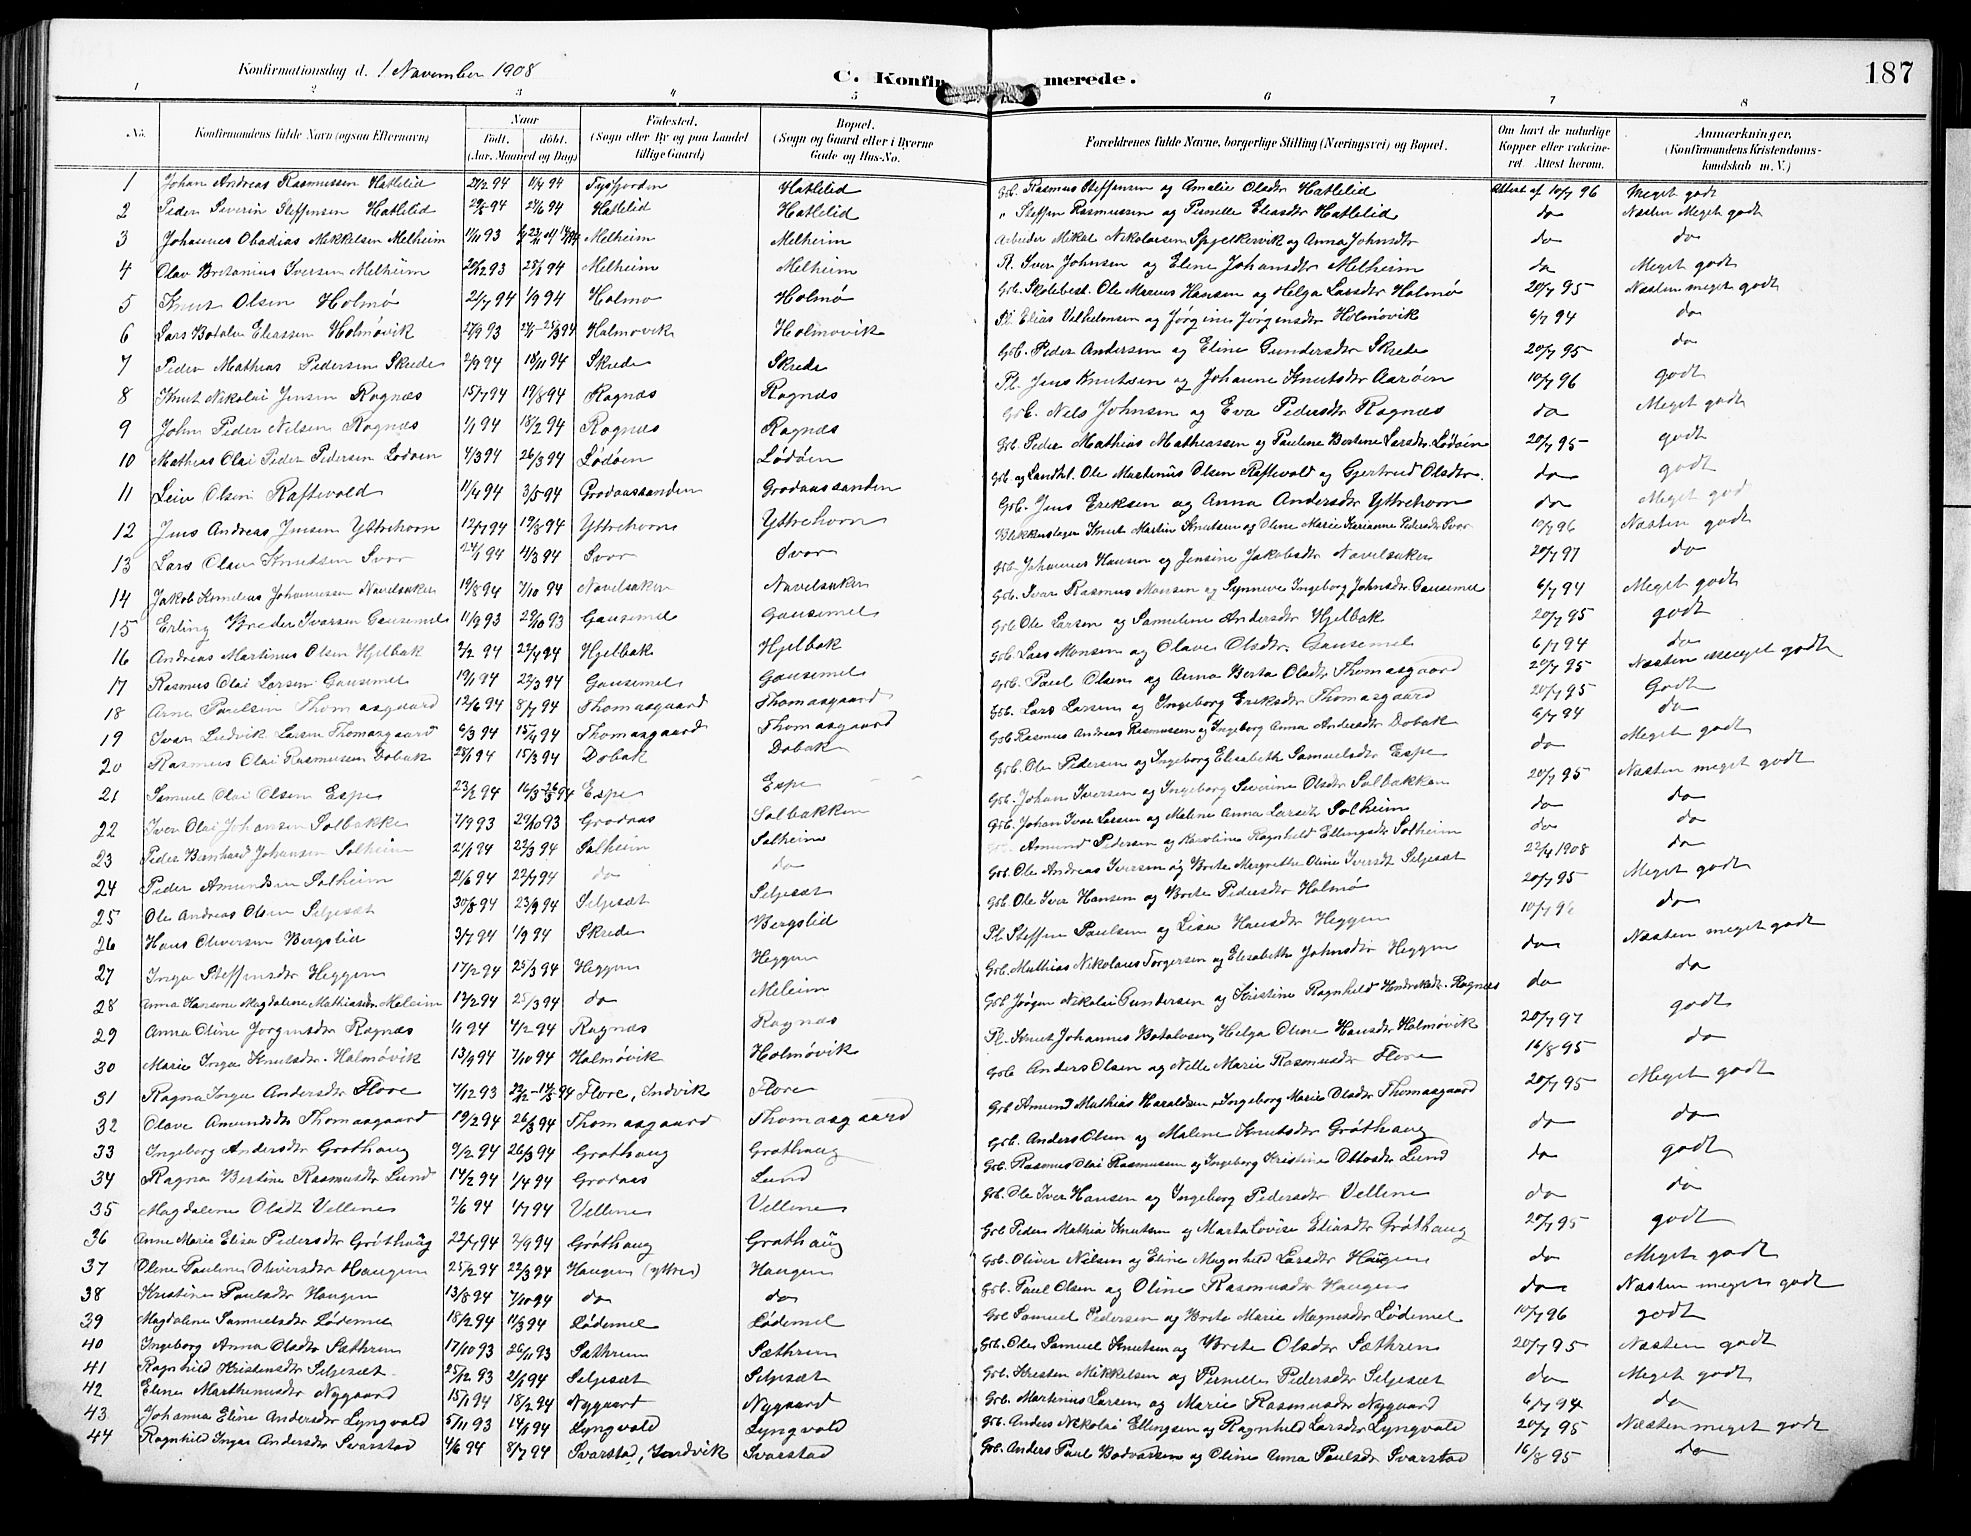 Konfirmationsdag d. 1 November 1908
C. Konfirmerede.
187
1 2 3 4 5 6 7 8
No. Konfirmandens fulde Navn (ogsaa Efternavn) Naar født. døbt. (Aar, Maaned og Dag) Fødested. (Sogn eller By og paa Landet tillige Gaard) Bopæl. (Sogn og Gaard eller i Byerne Gade og Hus-No. Forældrenes fulde Navne, borgerlige Stilling (Næringsvei) og Bopæl. Om havt de naturlige Kopper eller vaccineret. Attest herom. Anmærkninger, (Konfirmandens Kristendomskundskab m. V.)
1 Johan Andreas Rasmussen Hatlelid 21/2 94 1/4 94 Hatlelid Gbr. Rasmus Steffensen og Amalie Olsdtr Hatlelid Attest af 10/7 96 Meget godt
2 Peder Severin Steffensen Hatlelid 29/5 94 24/6 94 Hatlelid Hatlelid " Steffen Rasmussen og Pernille Eliasdtr Hatlelid do Næsten Meget godt
3 Johannes Obadias Mikkelsen Melheim 11/11 93 Melheim Melheim Arbeider Mikal Nikolaisen og Anna Johnsdtr do do
4 Olav Bretanius Iversen Melheim 20/12 93 25/1 94 Melheim Melheim Iver Johnsen og Eline Johansdtr Melheim do Meget godt
5 Knut Olsen Holmö 21/7 94 1/9 94 Holmö Holmö Gbr. Skolebest. Ole Marius Hansen og Helga Larsdtr Holmö 20/7 95 Næsten meget godt
6 Lars Botolv Eliassen Holmövik 27/9 93 Holmövik Holmövik Pl. Elias Vilhelmsen og Jörgine Jörgensdtr Holmövik 6/7 94 do
7 Peder Mathias Pedersen Skrede 2/9 94 18/11 94 Skrede Skrede Gbr. Peder Andersen og Eline Gundersdtr Skrede 20/7 95 do
8 Knut Nikolai Jensen Rognæs 15/7 94 19/8 94 Rognæs Rognæs Pl. Jens Knutsen og Johanne Knutsdtr Aaröen 10/7 96 godt
9 John Peder Nilsen Rognæs 1/1 94 18/2 94 Rognæs Rognæs Gbr. Nels Johnsen og Eva Pedersdtr Rognæs do Meget godt
10 Mathias Olai Peder Pedersen Lodöen 4/3 94 26/3 94 Lödöen Lödöen Gbr. Peder Mathias Mathiassen og Pauline Bertine Larsdtr. Lödöen 20/7 95 godt
11 Leiv Olsen Raftevold 11/4 94 3/5 94 Grodaassanden Grodaassanden Gbr. og Landhl. Ole Martinus Olsen Raftevold og Gjertrud Olsdtr. do godt
12 Jens Andreas Jensen Yttrehorn 12/7 94 19/8 94 Yttrehorn Yttrehorn Gbr. Jens Eriksen og Anna Andersdtr Yttrehorn do Meget godt
13 Lars Olav Knutsen Svor 24/1 94 4/3 94 Svor Svor Blikkenslager Knut Martin Knutsen og Oline Marie Karianne Pedersdtr Svor 10/7 96 Næsten godt
14 Jakob Kornelius Johannessen Navelsaker 19/8 94 7/10 94 Navelsaker Navelsaker Gbr. Johannes Hansen og Jensine Jakobsdtr Navelsaker 20/7 97 do
15 Erling Breder Ivarsen Gausemel 11/9 93 29/10 93 Gausemel Gausemel Gbr. Ivar Rasmus Monsen og Synneve Ingeborg Johnsdtr Gausemel 6/7 94 Meget godt
16 Andreas Martinus Olsen Hjelbak 2/2 94 22/4 94 Hjelbak Hjelbak Gbr. Ole Larsen og Samuline Andersdtr Hjelbak 20/7 95 godt
17 Rasmus Olai Larsen Gausemel 19/1 94 22/3 94 Gausemel Gausemel Gbr. Lars Monsen og Olave Olsdtr. Gausemel 6/7 94 do
18 Arne Paulsen Thomasgaard 12/6 94 8/7 94 Thomasgaard Thomasgaard Gbr. Paul Olsen og Anna Berta Olsdtr Thomasgaard 20/7 95 Næsten meget godt
19 Ivar Ludvik Larsen Thomasgaard 6/3 94 15/4 94 Thomasgaard Thomasgaard Gbr. Lars Larsen og Ingeborg Eriksdtr Thomasgaard 20/7 95 Godt
20 Rasmus Olai Rasmussen Dobak 28/1 94 15/3 94 Dobak Dobak Gbr. Rasmus Andreas Rasmussen og Ingeborg Anna Andersdtr Dobak 6/7 94 do
21 Samuel Olai Olsen Espe 23/2 94 Espe Espe Gbr. Ole Pedersen og Ingeborg Elisabeth Samuelsdtr Espe do Meget godt
22 Iver Olai Johansen Solbakke 7/9 93 29/10 93 Grodaas Solbakken Gbr. Johan Iversen og Ingeborg Severine Olsdtr Solbakken 20/7 95 Næsten meget godt
23 Peder Bernhard Johansen Solheim 21/1 94 22/3 94 Solheim Solheim Gbr. Johan Ivar Larsen og Malene Anna Larsdtr Solheim do do
24 Peder Amundsen Solheim 21/6 94 22/7 94 do do Amund Pedersen og Karoline Ragnhild Ellingsdtr Solheim do do
25 Ole Andreas Olsen Seljesæt 30/8 94 23/9 94 Seljesæt Seljesæt Gbr. Ole Andreas Iversen og Brite Margrethe Oline Iversdt Seljesæt 22/4 1908 do
26 Hans Oliversen Bergslid 3/7 94 1/9 94 Skrede Bergslid Gbr. Ole Iver Hansen og Brite Pedersdtr Holmö 20/7 95 Meget godt
27 Inga Steffensdtr Heggen 17/2 94 25/3 94 Heggen Heggen Pl. Steffen Paulsen og Lisa Hansdtr Heggen 10/7 96 do
28 Anna Hansine Magdalene Mathiasdtr Meleim 12/2 94 25/3 94 do Meleim Gbr. Mathias Nikolaus Torgersen og Elisabeth Johnsdtr Heggen do Næsten meget godt
29 Anna Oline Jorgensdtr Rognæs 1/1 94 4/2 94 Rognæs Rognæs Gbr Jörgen Nikolai Gundersen og Kristine Ragnhild Hendriksdtr. Rognæs do do
30 Marie Inga Knutsdtr. Holmövik 13/9 94 7/10 94 Holmövik Holmövik Pl. Knut Johannes Botolvsen, Helga Oline Hansdtr Holmövik 20/7 97 godt
31 Ragna Inga Andersdtr Flore 7/12 93 Flore, Indvik Flore Gbr Anders Olsen og Nelle Marie Rasmusdtr Flore 16/8 95 do
32 Olave Amundsdtr Thomasgaard 19/2 94 26/3 94 Thomasgaard Thomasgaard Gbr Amund Mathias Haraldsen, Ingeborg Marie Olsdtr Thomasgaard 20/7 95 Meget godt
33 Ingeborg Andersdtr Grothaug 9/2 94 26/3 94 Grothaug Grothaug Gbr. Anders Olsen og Malene Knutsdtr Gröthaug do do
34 Ragna Bertine Rasmusdtr Lund 14/2 94 1/4 94 Grodaas Lund Gbr. Rasmus Olai Rasmussen og Ingeborg Kristine Ottosdtr Lund do godt
35 Magdalene Olsdt Vellene 2/6 94 1/7 94 Vellene Vellene Gbr. Ole Iver Hansen og Ingeborg Pedersdtr Vellene do do
36 Anne Marie Elisa Pedersdtr Gröthaug 22/7 94 2/9 94 Gröthaug Grothaug Gbr Peder Mathias Knutsen og Marta Lovise Eliasdtr Gröthaug 20/7 95 godt
37 Oline Pauline Oliversdtr Haugen 25/2 94 22/3 94 Haugen (yttre) Haugen Gbr. Oliver Nilsen og Eline Magnhild Larsdtr Haugen do Meget godt
38 Kristine Paulsdtr Haugen 13/8 94 7/10 94 do do Gbr. Paul Olsen og Oline Rasmusdtr Haugen do Næsten meget godt
39 Magdalene Samuelsdtr Lödemel 18/2 94 11/3 94 Lödemel Lödemel Gbr Samuel Pedersen og Brite Marie Magnesdtr Lödemel 10/7 96 godt
40 Ingeborg Anna Olsdtr Sæthren 17/10 93 26/11 93 Sæthren Sæthren Gbr. Ole Samuel Knutsen og Brite Olsdtr Sæthren 20/7 95 Næsten godt
41 Ragnhild Kristensdtr Seljesæt 25/12 93 2/1 94 Seljesæt Seljesæt Gbr. Kristen Mikkelsen og Pernille Pedersdtr Seljesæt do Meget godt
42 Eline Marthinusdtr Nygaard 15/1 94 18/2 94 Nygaard Nygaard Gbr. Martinius Larsen og Marie Rasmusdtr Nygaard 6/7 94 do
43 Johanna Eline Andersdtr Lyngvold 5/11 93 14/1 94 Lyngvold Lyngvold Gbr. Anders Nikolai Ellingsen og Ragnhild Larsdtr Lyngvold 20/7 95 Næsten meget godt
44 Ragnhild Inga Andersdtr Svarstad 4/6 94 8/7 94 Svarstad, Indvik Svarstad Gbr. Anders Paul Bodvarsen og Oline Anna Paulsdtr Svarstad 16/8 95 do